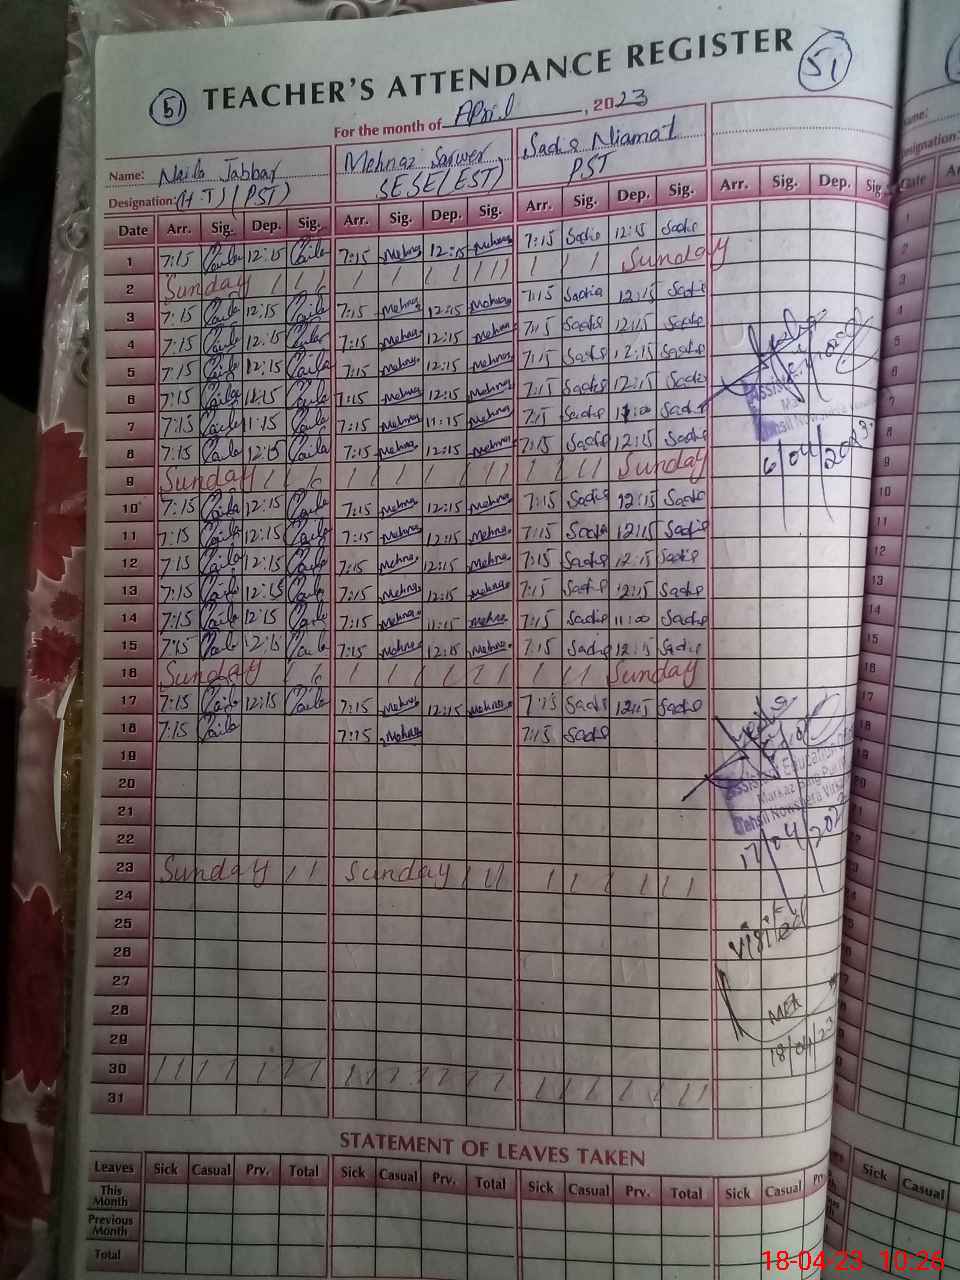 TEACHER'S ATTENDANCE REGISTER
51
51
For the month of April, 2023
Name: Naila Jabbar Mehnaz Sarwer Sadia Niamat
Designation: (H.T) (PST) SESE (EST) PST
Date Arr. Sig. Dep. Sig. Arr. Sig. Dep. Sig. Arr. Sig. Dep. Sig. Arr. Sig. Dep. Sig.
1 7:15 Naila 12:15 Naila 7:15 Mehnaz 12:15 Mehnaz 7:15 Sadia 12:15 Sadia
2 Sunday Sunday
3 7:15 Naila 12:15 Naila 7:15 Mehnaz 12:15 Mehnaz 7:15 Sadia 12:15 Sadia
4 7:15 Naila 12:15 Naila 7:15 Mehnaz 12:15 Mehnaz 7:15 Sadia 12:15 Sadia
5 7:15 Naila 12:15 Naila 7:15 Mehnaz 12:15 Mehnaz 7:15 Sadia 12:15 Sadia
6 7:15 Naila Naila 7:15 Mehnaz 12:15 Mehnaz 7:15 Sadia 12:15 Sadia
7 7:15 Naila 11:15 Naila 7:15 Mehnaz 11:15 Mehnaz 7:15 Sadia 11:00 Sadia
8 7:15 Naila 12:15 Naila 7:15 Mehnaz 12:15 Mehnaz 7:15 Sadia 12:15 Sadia
9 Sunday Sunday
10 7:15 Naila 12:15 Naila 7:15 Mehnaz 12:15 Mehnaz 7:15 Sadia 12:15 Sadia
11 7:15 Naila 12:15 Naila 7:15 Mehnaz 12:15 Mehnaz 7:15 Sadia 12:15 Sadia
12 7:15 Naila 12:15 Naila 7:15 Mehnaz 12:15 Mehnaz 7:15 Sadia 12:15 Sadia
13 7:15 Naila 12:15 Naila 7:15 Mehnaz 12:15 Mehnaz 7:15 Sadia 12:15 Sadia
14 7:15 Naila 12:15 Naila 7:15 Mehnaz 11:15 Mehnaz 7:15 Sadia 11:00 Sadia
15 7:15 Naila 12:15 Naila 7:15 Mehnaz 12:15 Mehnaz 7:15 Sadia 12:15 Sadia
16 Sunday Sunday
17 7:15 Naila 12:15 Naila 7:15 Mehnaz 12:15 Mehnaz 7:15 Sadia 12:15 Sadia
18 7:15 Naila 7:15 Mehnaz 7:15 Sadia
19
20
21
22
23 Sunday Sunday
24
25
26
27
28
29
30
31
6/04/2023
Assistant Education
Markaz
Tehsil Nowshera Virkan
17/04/202
visited
MEA
18/04/23
STATEMENT OF LEAVES TAKEN
Leaves Sick Casual Prv. Total Sick Casual Prv. Total Sick Casual Prv. Total Sick Casual
This Month
Previous Month
Total
Name:
Designation:
Date
1
2
3
5
7
8
9
10
11
12
13
14
15
16
17
18
20
21
22
Sick Casual
18-04-23 10:26